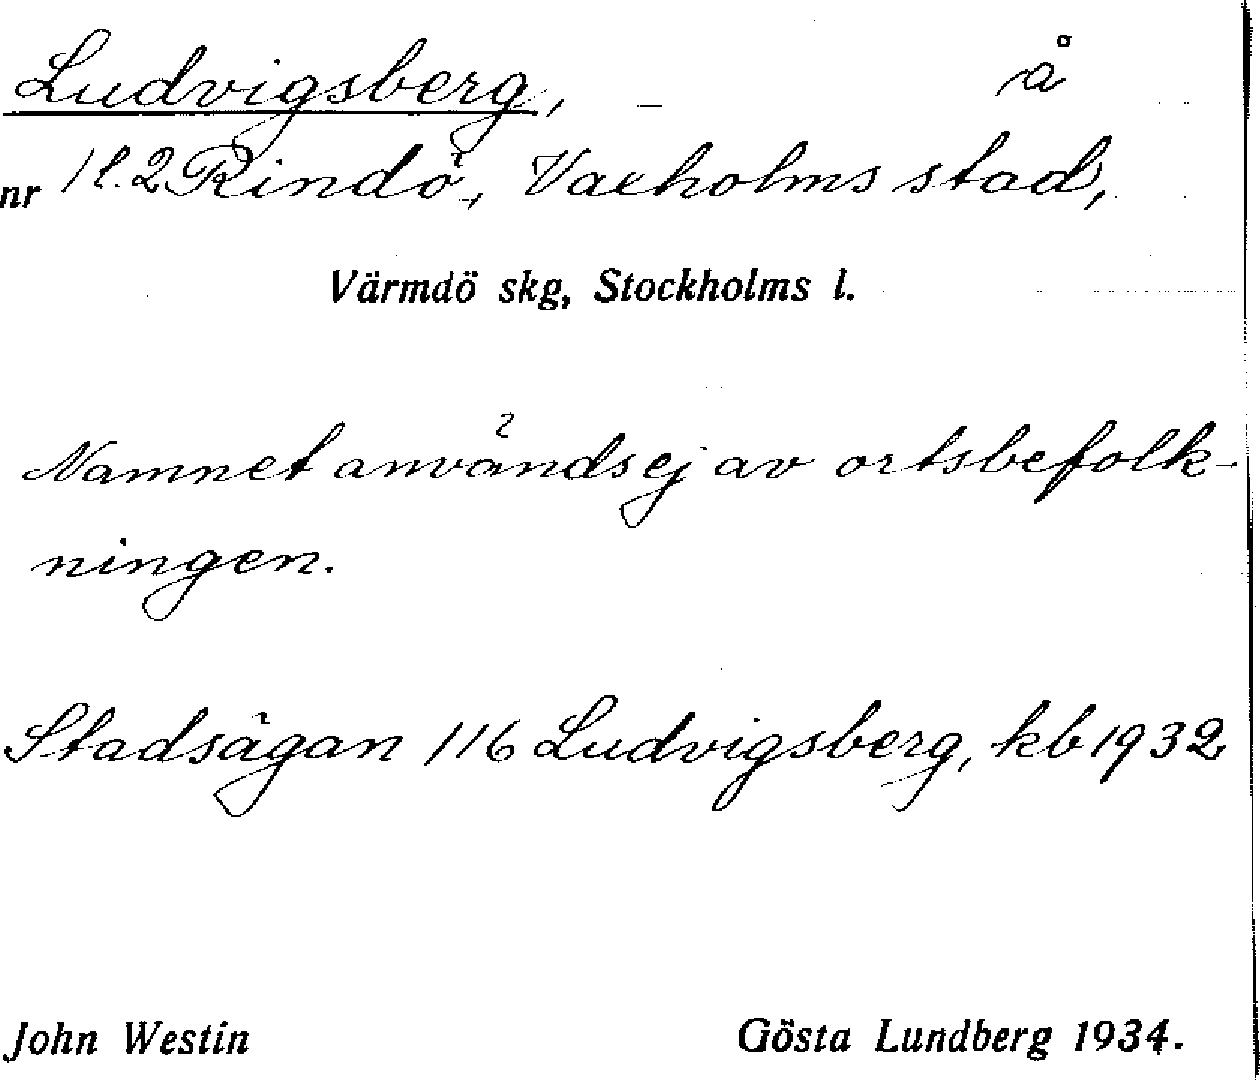 Ludvigsberg, — å
nr 1 l. 2 Rindö, Vaxholms stad,
Värmdö skg, Stockholms l.
Namnet användsej av ortsbefolk-
ningen.
Stadsägan 116 Ludvigsberg, kb 1932
John Westin Gösta Lundberg 1934.